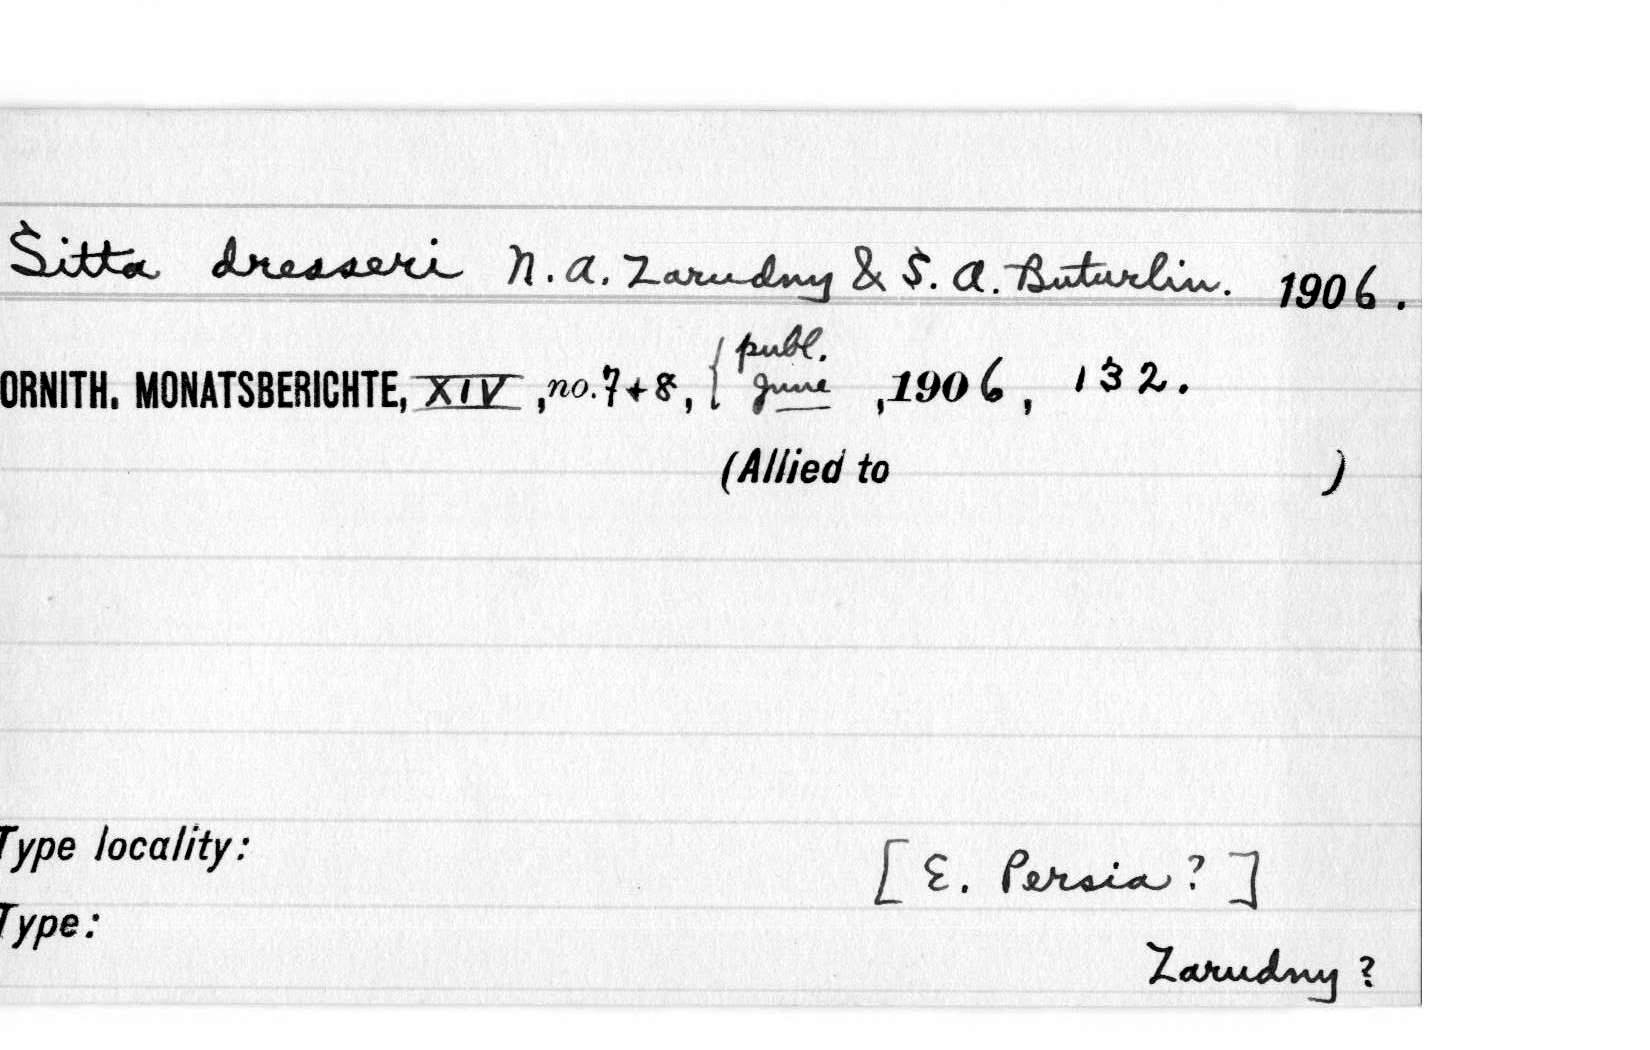 Sitta dresseri N. A. Zarudny & S. A. Buturlin. 1906.
publ.
ORNITH. MONATSBERICHTE, XIV, no. 7+8, { June, 1906, 132.
(Allied to )
Type locality: [E. Persia?]
Type:
Zarudny?